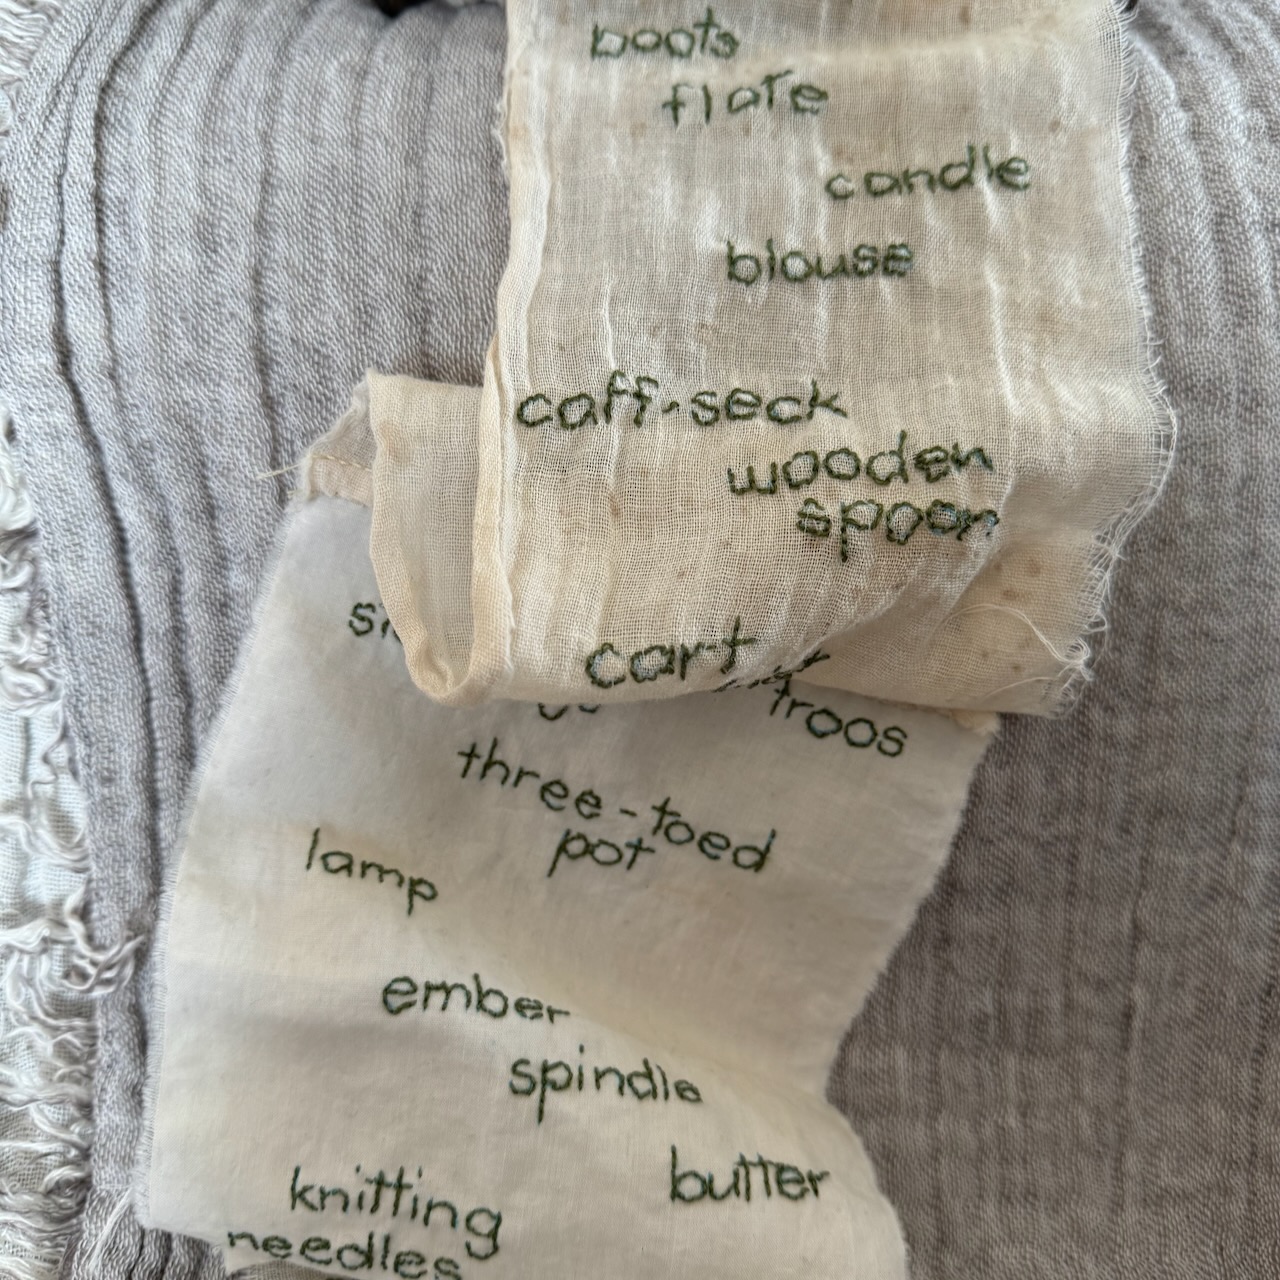 boots
flate
candle
blouse
caff-seck
wooden
spoon
cart
troos
three-toed
pot
lamp
ember
spindle
butter
knitting
needles